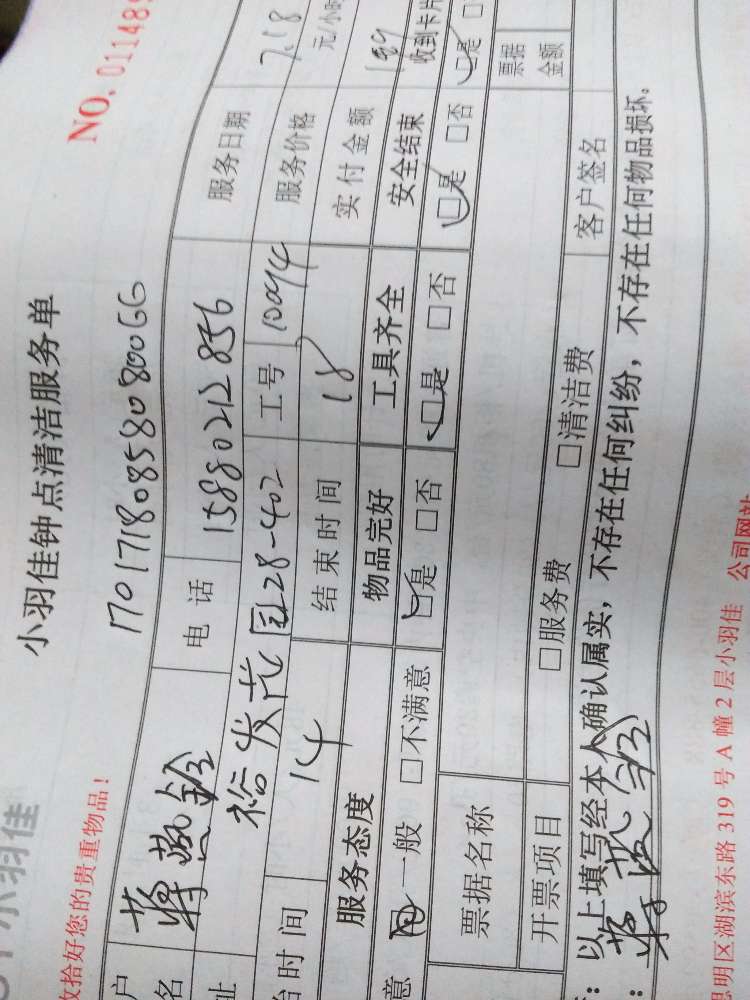 小羽佳
小羽佳钟点清洁服务单
收拾好您的贵重物品！
NO. 01148
17017180858080066
户名 蒋 电话 15880212856 服务日期 7.18
址 裕发花园28-402 工号 10094 服务价格 元/小时
时间 14 结束时间 18 实付金额
服务态度 物品完好 工具齐全 安全结束 收到卡片
意 一般 □不满意 是 □否 是 □否 是 □否 是
票据名称 票据金额
开票项目 □服务费 □清洁费 客户签名
：以上填写经本人确认属实，不存在任何纠纷，不存在任何物品损坏。
思明区湖滨东路 319 号 A 幢 2 层小羽佳 公司网站